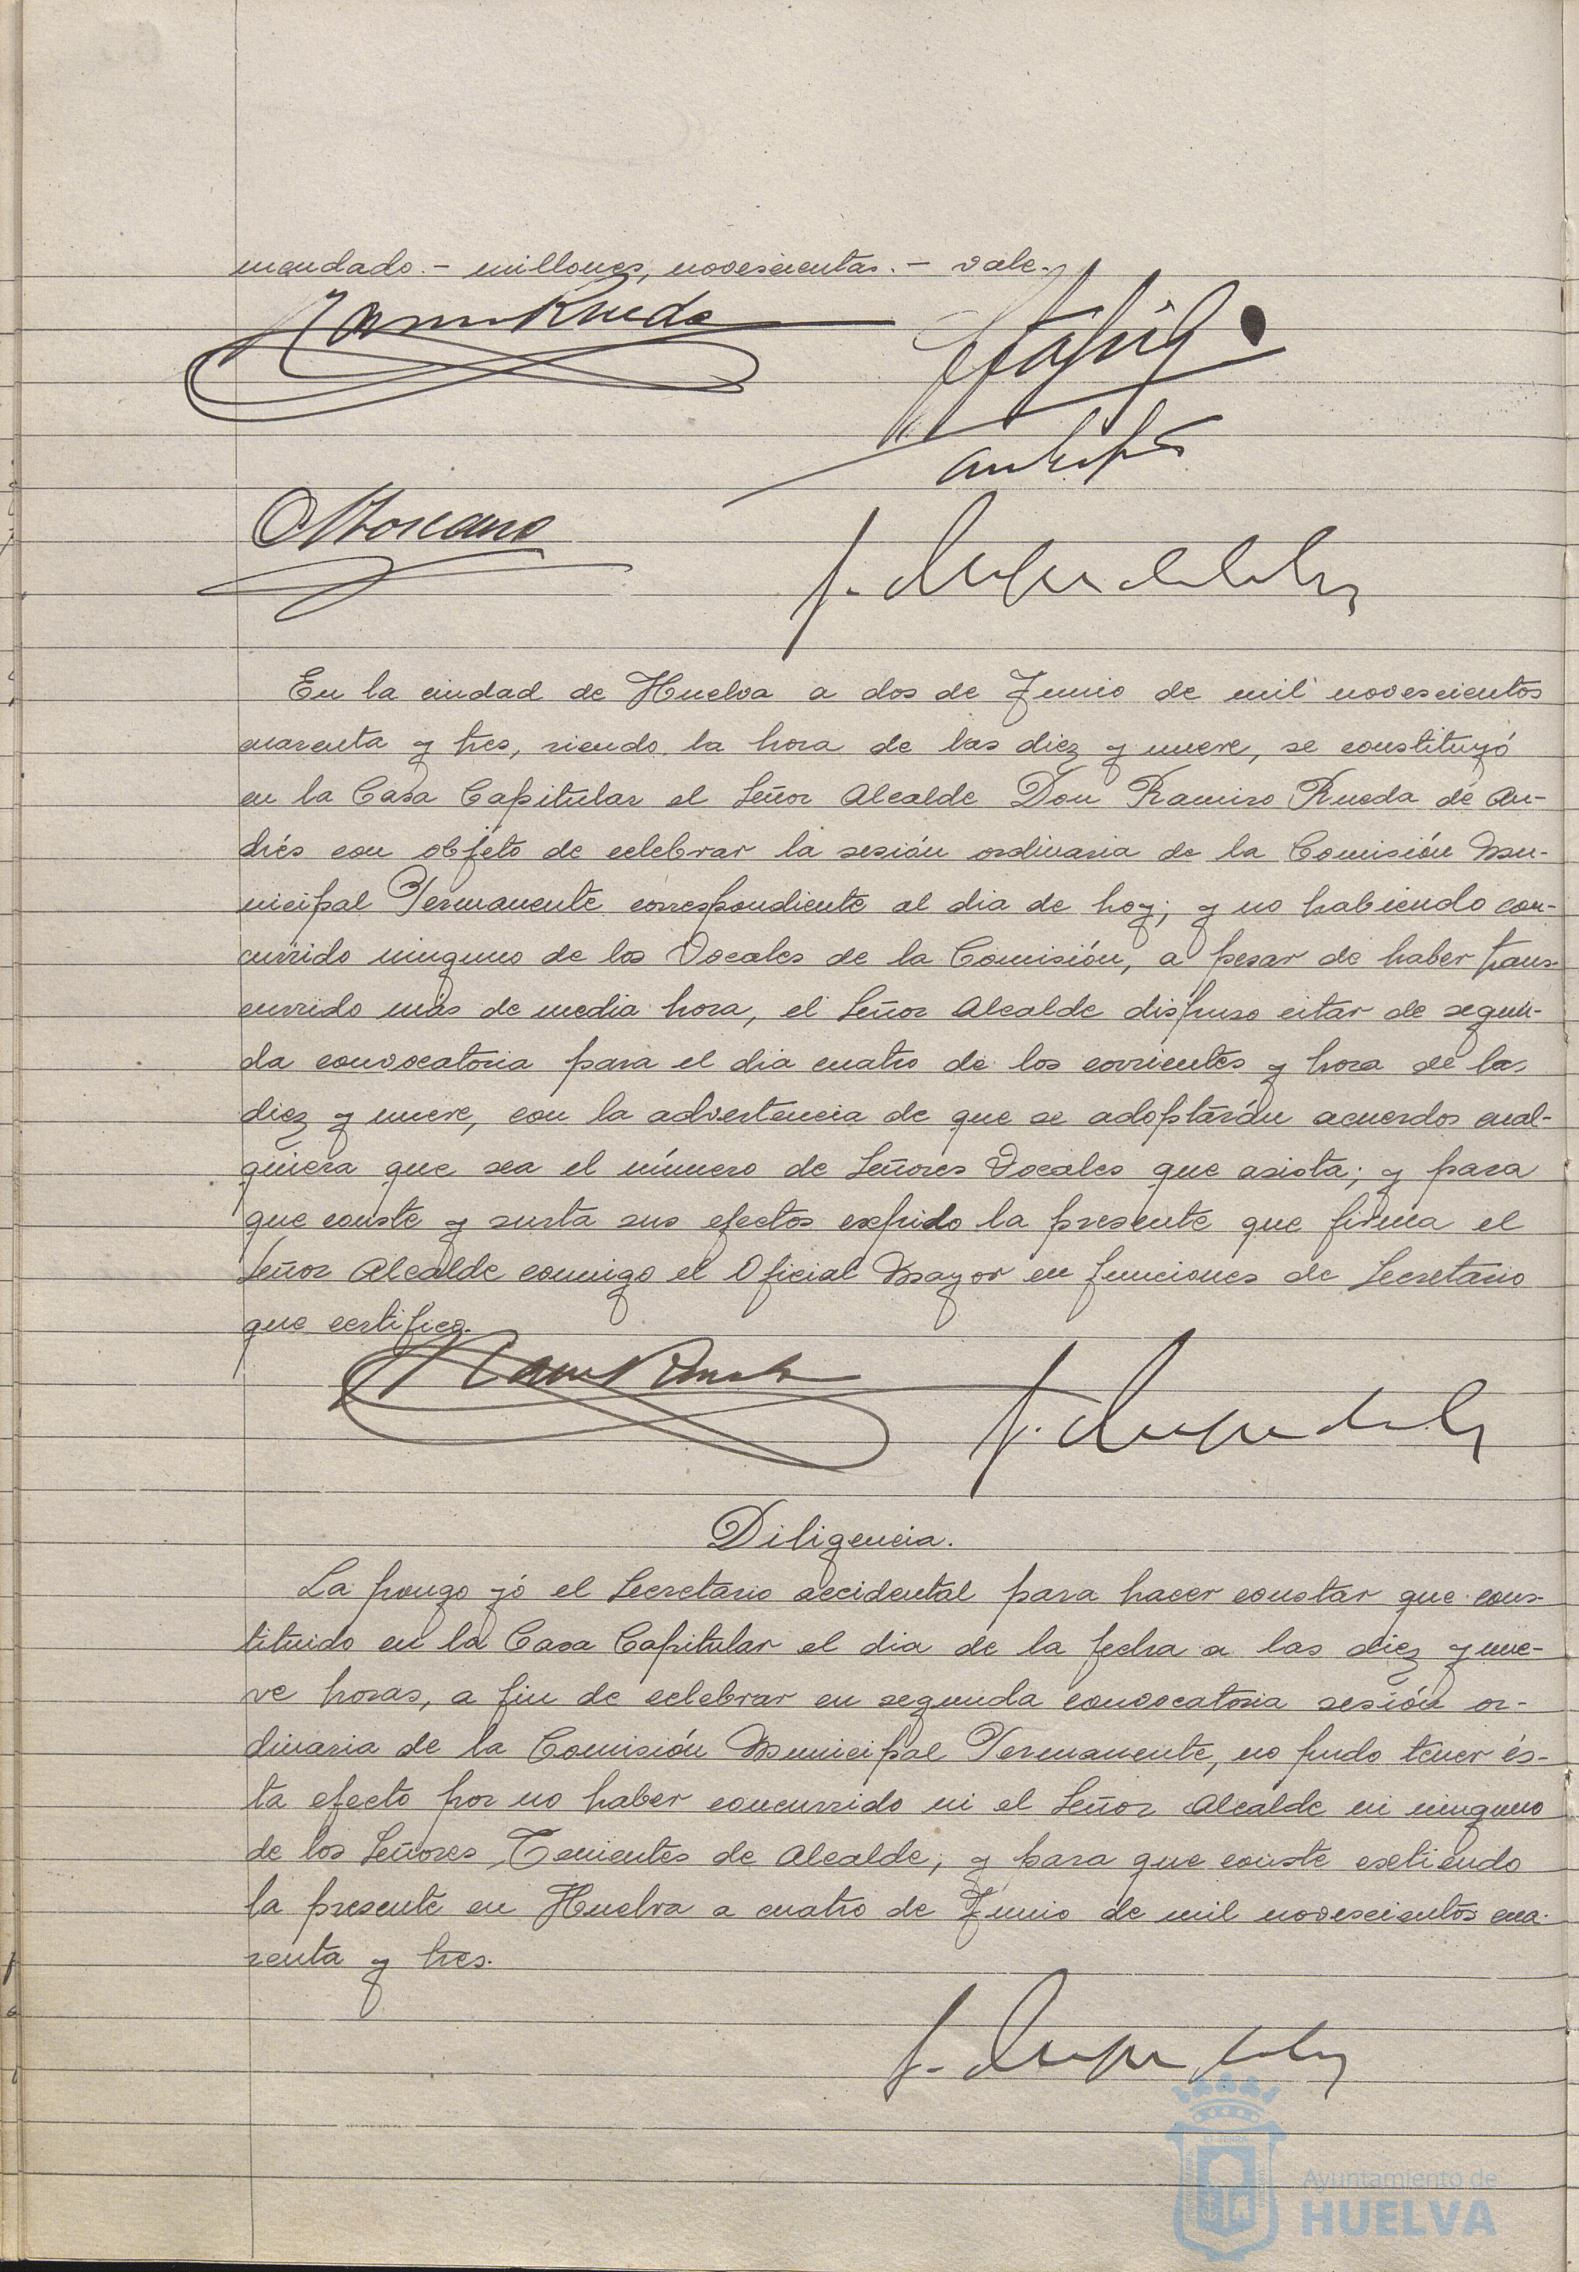 mendado.- millones, novescientas.- vale.
Ramiro Rueda
En la ciudad de Huelva a dos de Junio de mil novescientos
cuarenta y tres, siendo la hora de las diez y nueve, se constituyó
en la Casa Capitular el Señor Alcalde Don Ramiro Rueda de An-
drés con objeto de celebrar la sesión ordinaria de la Comisión Mu-
nicipal Permanente correspondiente al dia de hoy; y no habiendo con-
currido ninguno de los Vocales de la Comisión, a pesar de haber trans-
currido más de media hora, el Señor Alcalde dispuso citar de segun-
da convocatoria para el dia cuatro de los corrientes y hora de las
diez y nueve, con la advertencia de que se adoptarán acuerdos cual-
quiera que sea el número de Señores Vocales que asista; y para
que conste y surta sus efectos expido la presente que firma el
Señor Alcalde conmigo el Oficial Mayor en funciones de Secretario
que certifico.
Ramiro Rueda
Diligencia.
La pongo yó el Secretario accidental para hacer constar que cons-
tituido en la Casa Capitular el dia de la fecha a las diez y nue-
ve horas, a fin de celebrar en segunda convocatoria sesión or-
dinaria de la Comisión Municipal Permanente, no pudo tener és-
ta efecto por no haber concurrido ni el Señor Alcalde ni ninguno
de los Señores Tenientes de Alcalde; y para que conste extiendo
la presente en Huelva a cuatro de Junio de mil novescientos cua-
renta y tres.
Ayuntamiento de
HUELVA